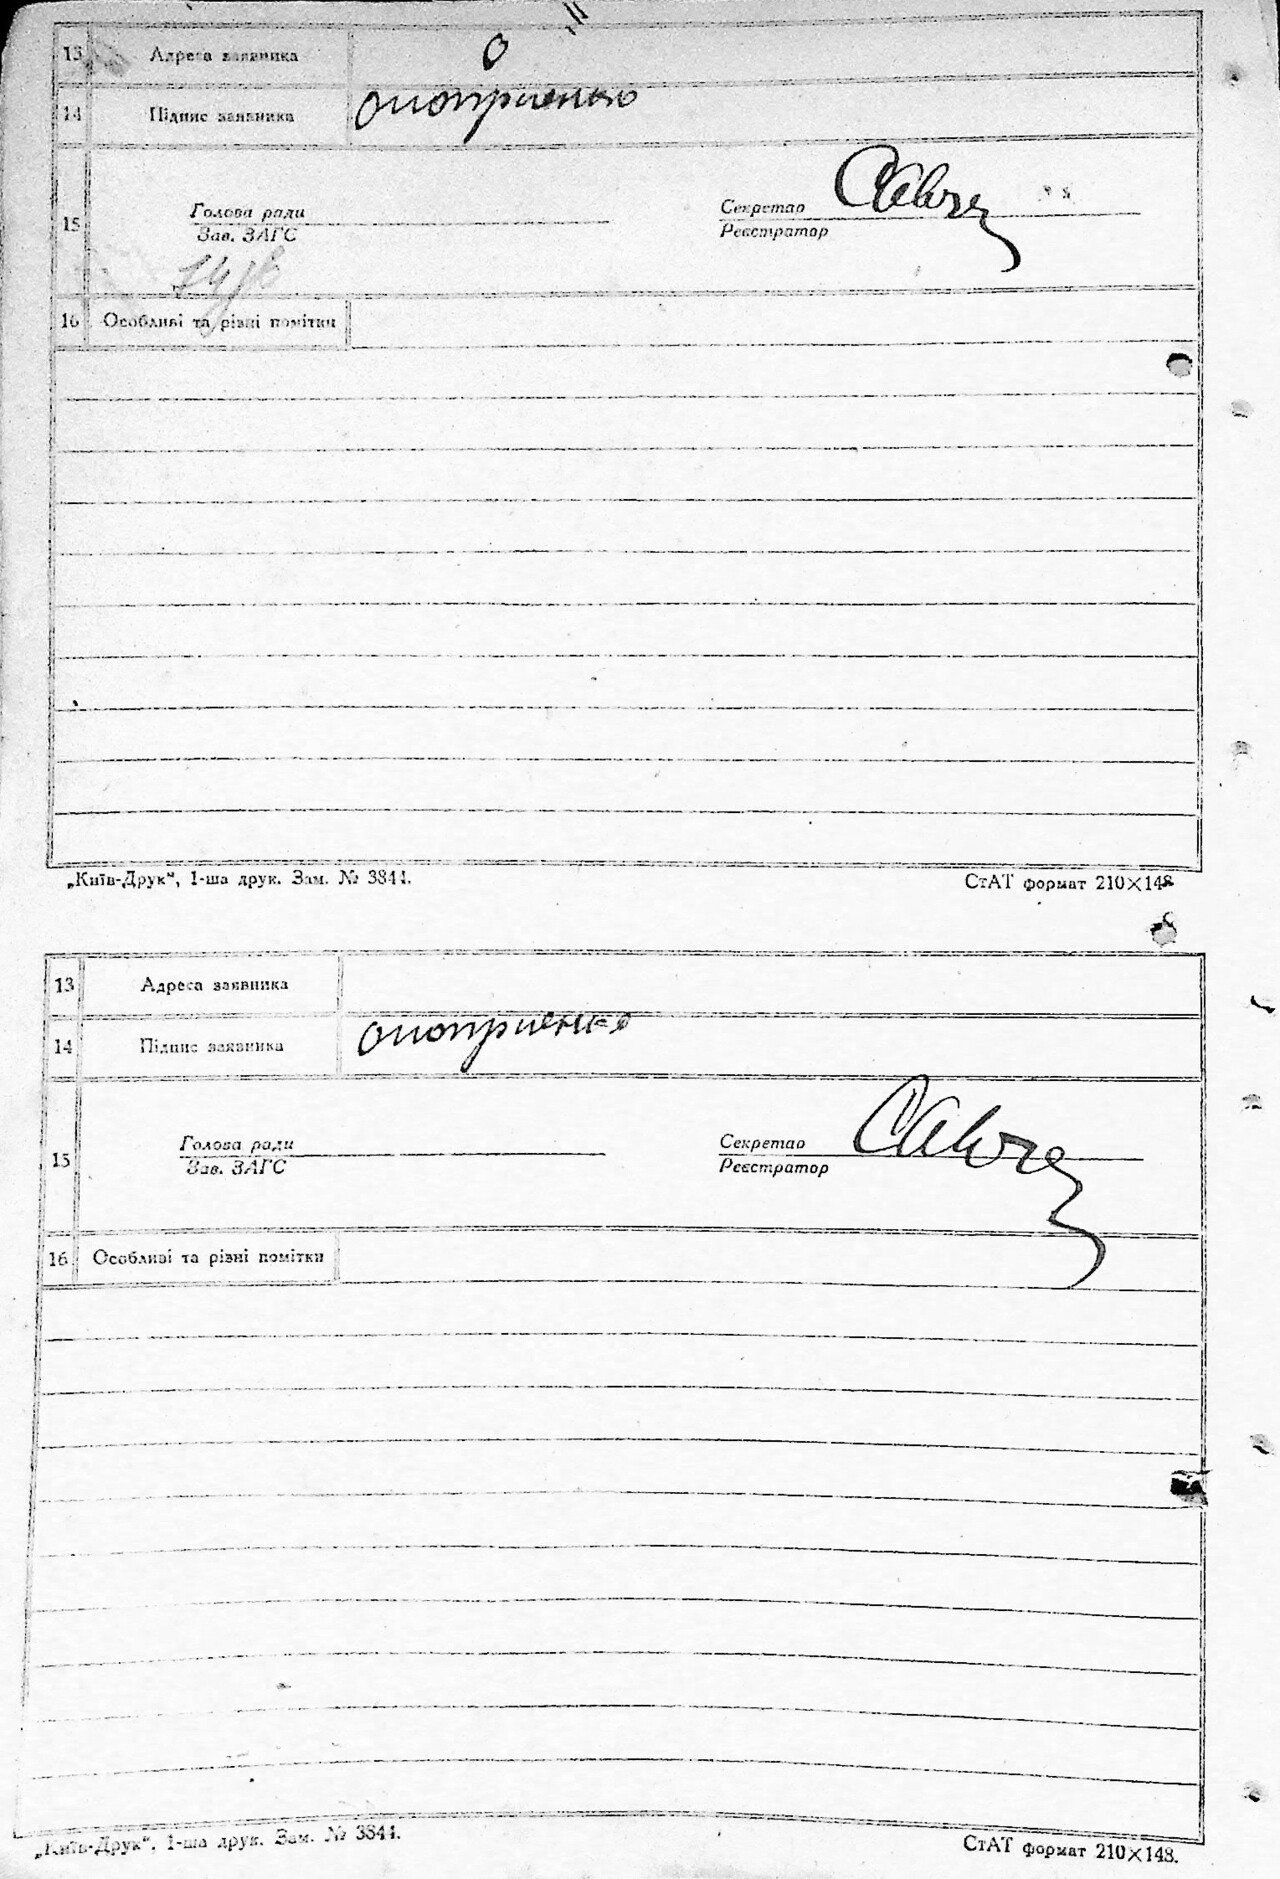 13 Адреса заявника
14 Підпис заявника оноприенко
15 Голова ради Секретар
Зав. ЗАГС Реєстратор
16 Особливі та різні помітки
„Київ-Друк“, 1-ша друк. Зам. № 3844. СтАТ формат 210×148
13 Адреса заявника
14 Підпис заявника оноприенко
15 Голова ради Секретар
Зав. ЗАГС Реєстратор
16 Особливі та різні помітки
„Київ-Друк“, 1-ша друк. Зам. № 3844. СтАТ формат 210×148.